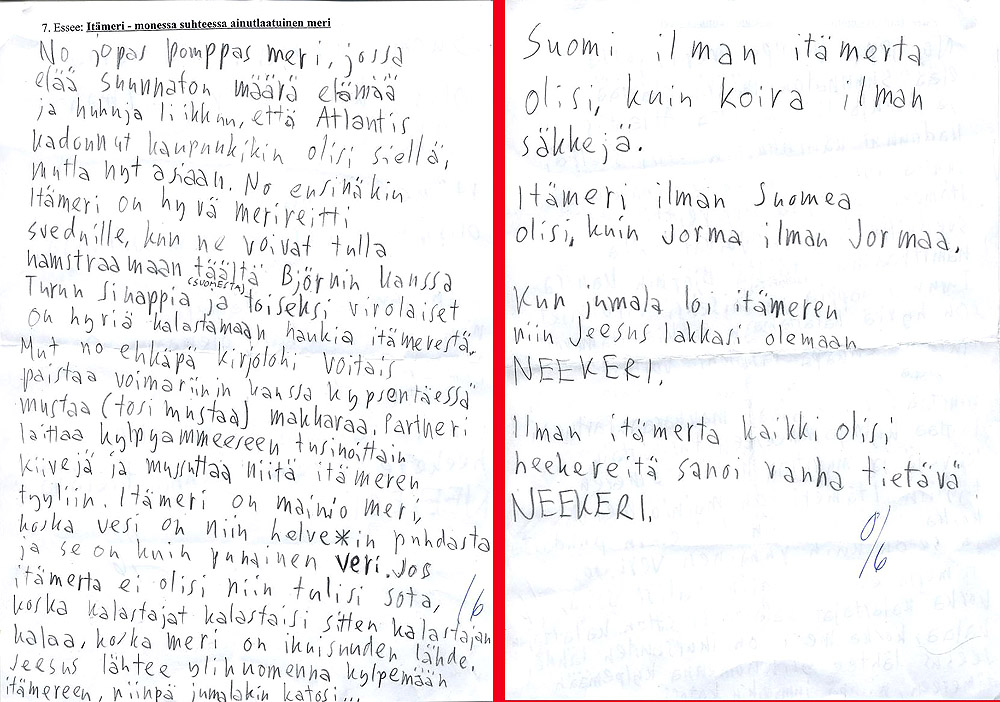 7. Essee: Itämeri - monessa suhteessa ainutlaatuinen meri
No jopas pomppas meri, jossa
elää suunnaton määrä elämää
ja huhuja liikkuu, että Atlantis
kadonnut kaupunkikin olisi siellä,
mutta nyt asiaan. No ensinäkin
Itämeri on hyvä merireitti
sveduille, kun ne voivat tulla
hamstraamaan täältä Björnin kanssa
(SUOMESTA)
Turun Sinappia ja toiseksi virolaiset
on hyviä kalastamaan haukia itämerestä.
Mut no ehkäpä kirjolohi voitais
paistaa voimariinin kanssa kypsentäessä
mustaa (tosi mustaa) makkaraa. Partneri
laittaa kylpyammeeseen tusinoittain
kiivejä ja mussuttaa niitä itämeren
tyyliin. Itämeri on mainio meri,
koska vesi on niin helve*in puhdasta
ja se on kuin punainen veri. Jos
itämerta ei olisi niin tulisi sota,
koska kalastajat kalastaisi sitten kalastajan
kalaa, koska meri on ikuisuuden lähde.
Jeesus lähtee ylihuomenna kylpemään
itämereen, niinpä jumalakin katosi...
/6
Suomi ilman itämerta
olisi, kuin koira ilman
säkkejä.
Itämeri ilman Suomea
olisi, kuin Jorma ilman Jormaa.
Kun jumala loi itämeren
niin Jeesus lakkasi olemaan
NEEKERI.
Ilman itämerta kaikki olisi
neekereitä sanoi vanha tietävä
NEEKERI.
0/6